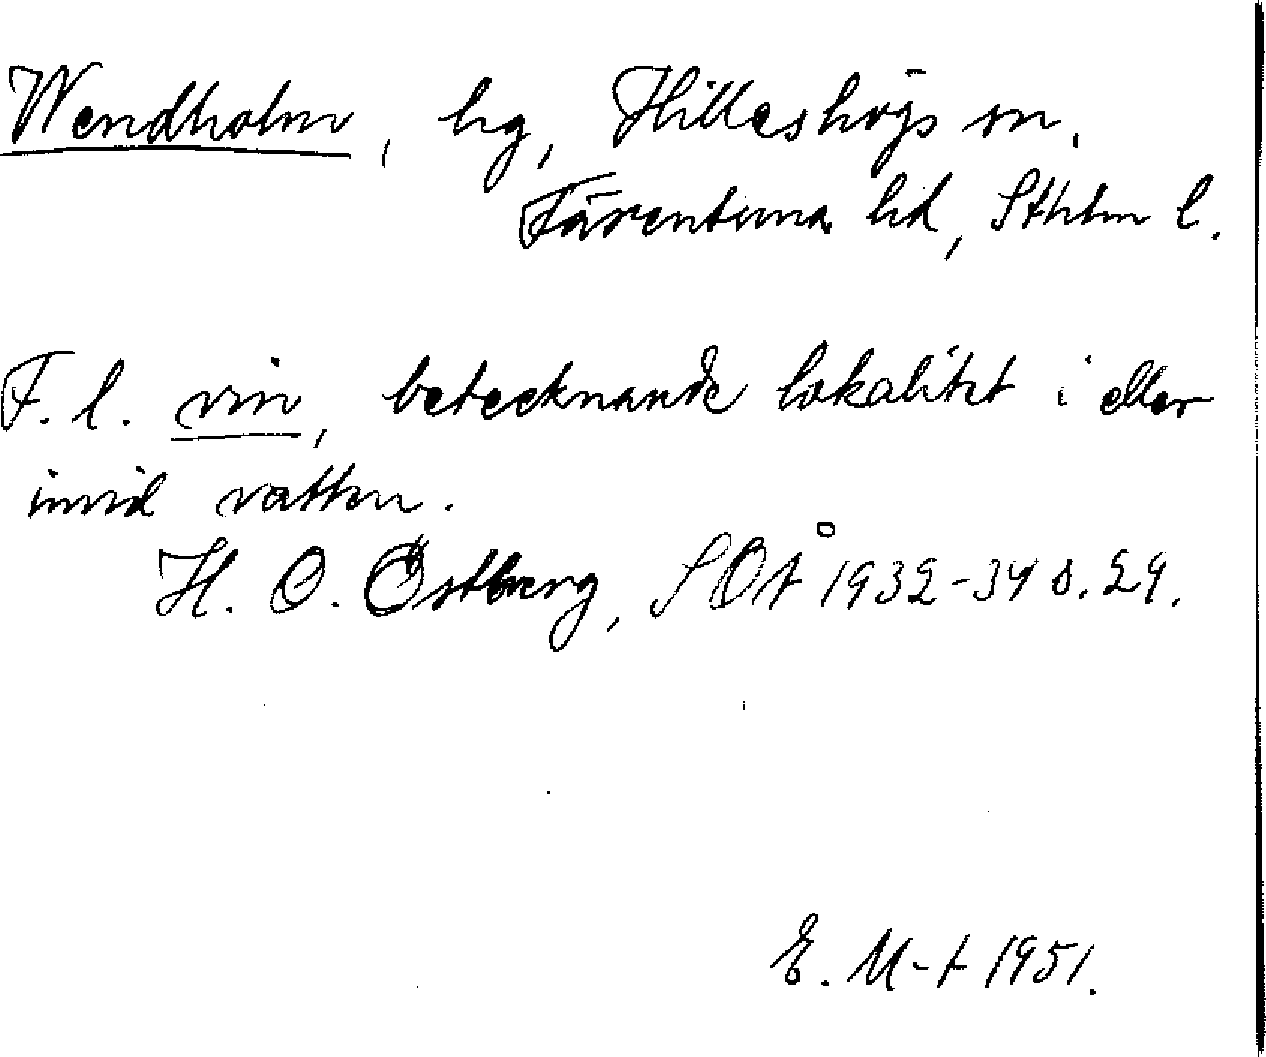 Wendholm, hg, Hilleshögs sn.
Färentuna hd, Sthlm l.
F. l. vin, betecknande lokalitet i eller
invid vatten.
H. O. Östberg, SOÅ 1932-34 s. 29.
E. M-t 1951.